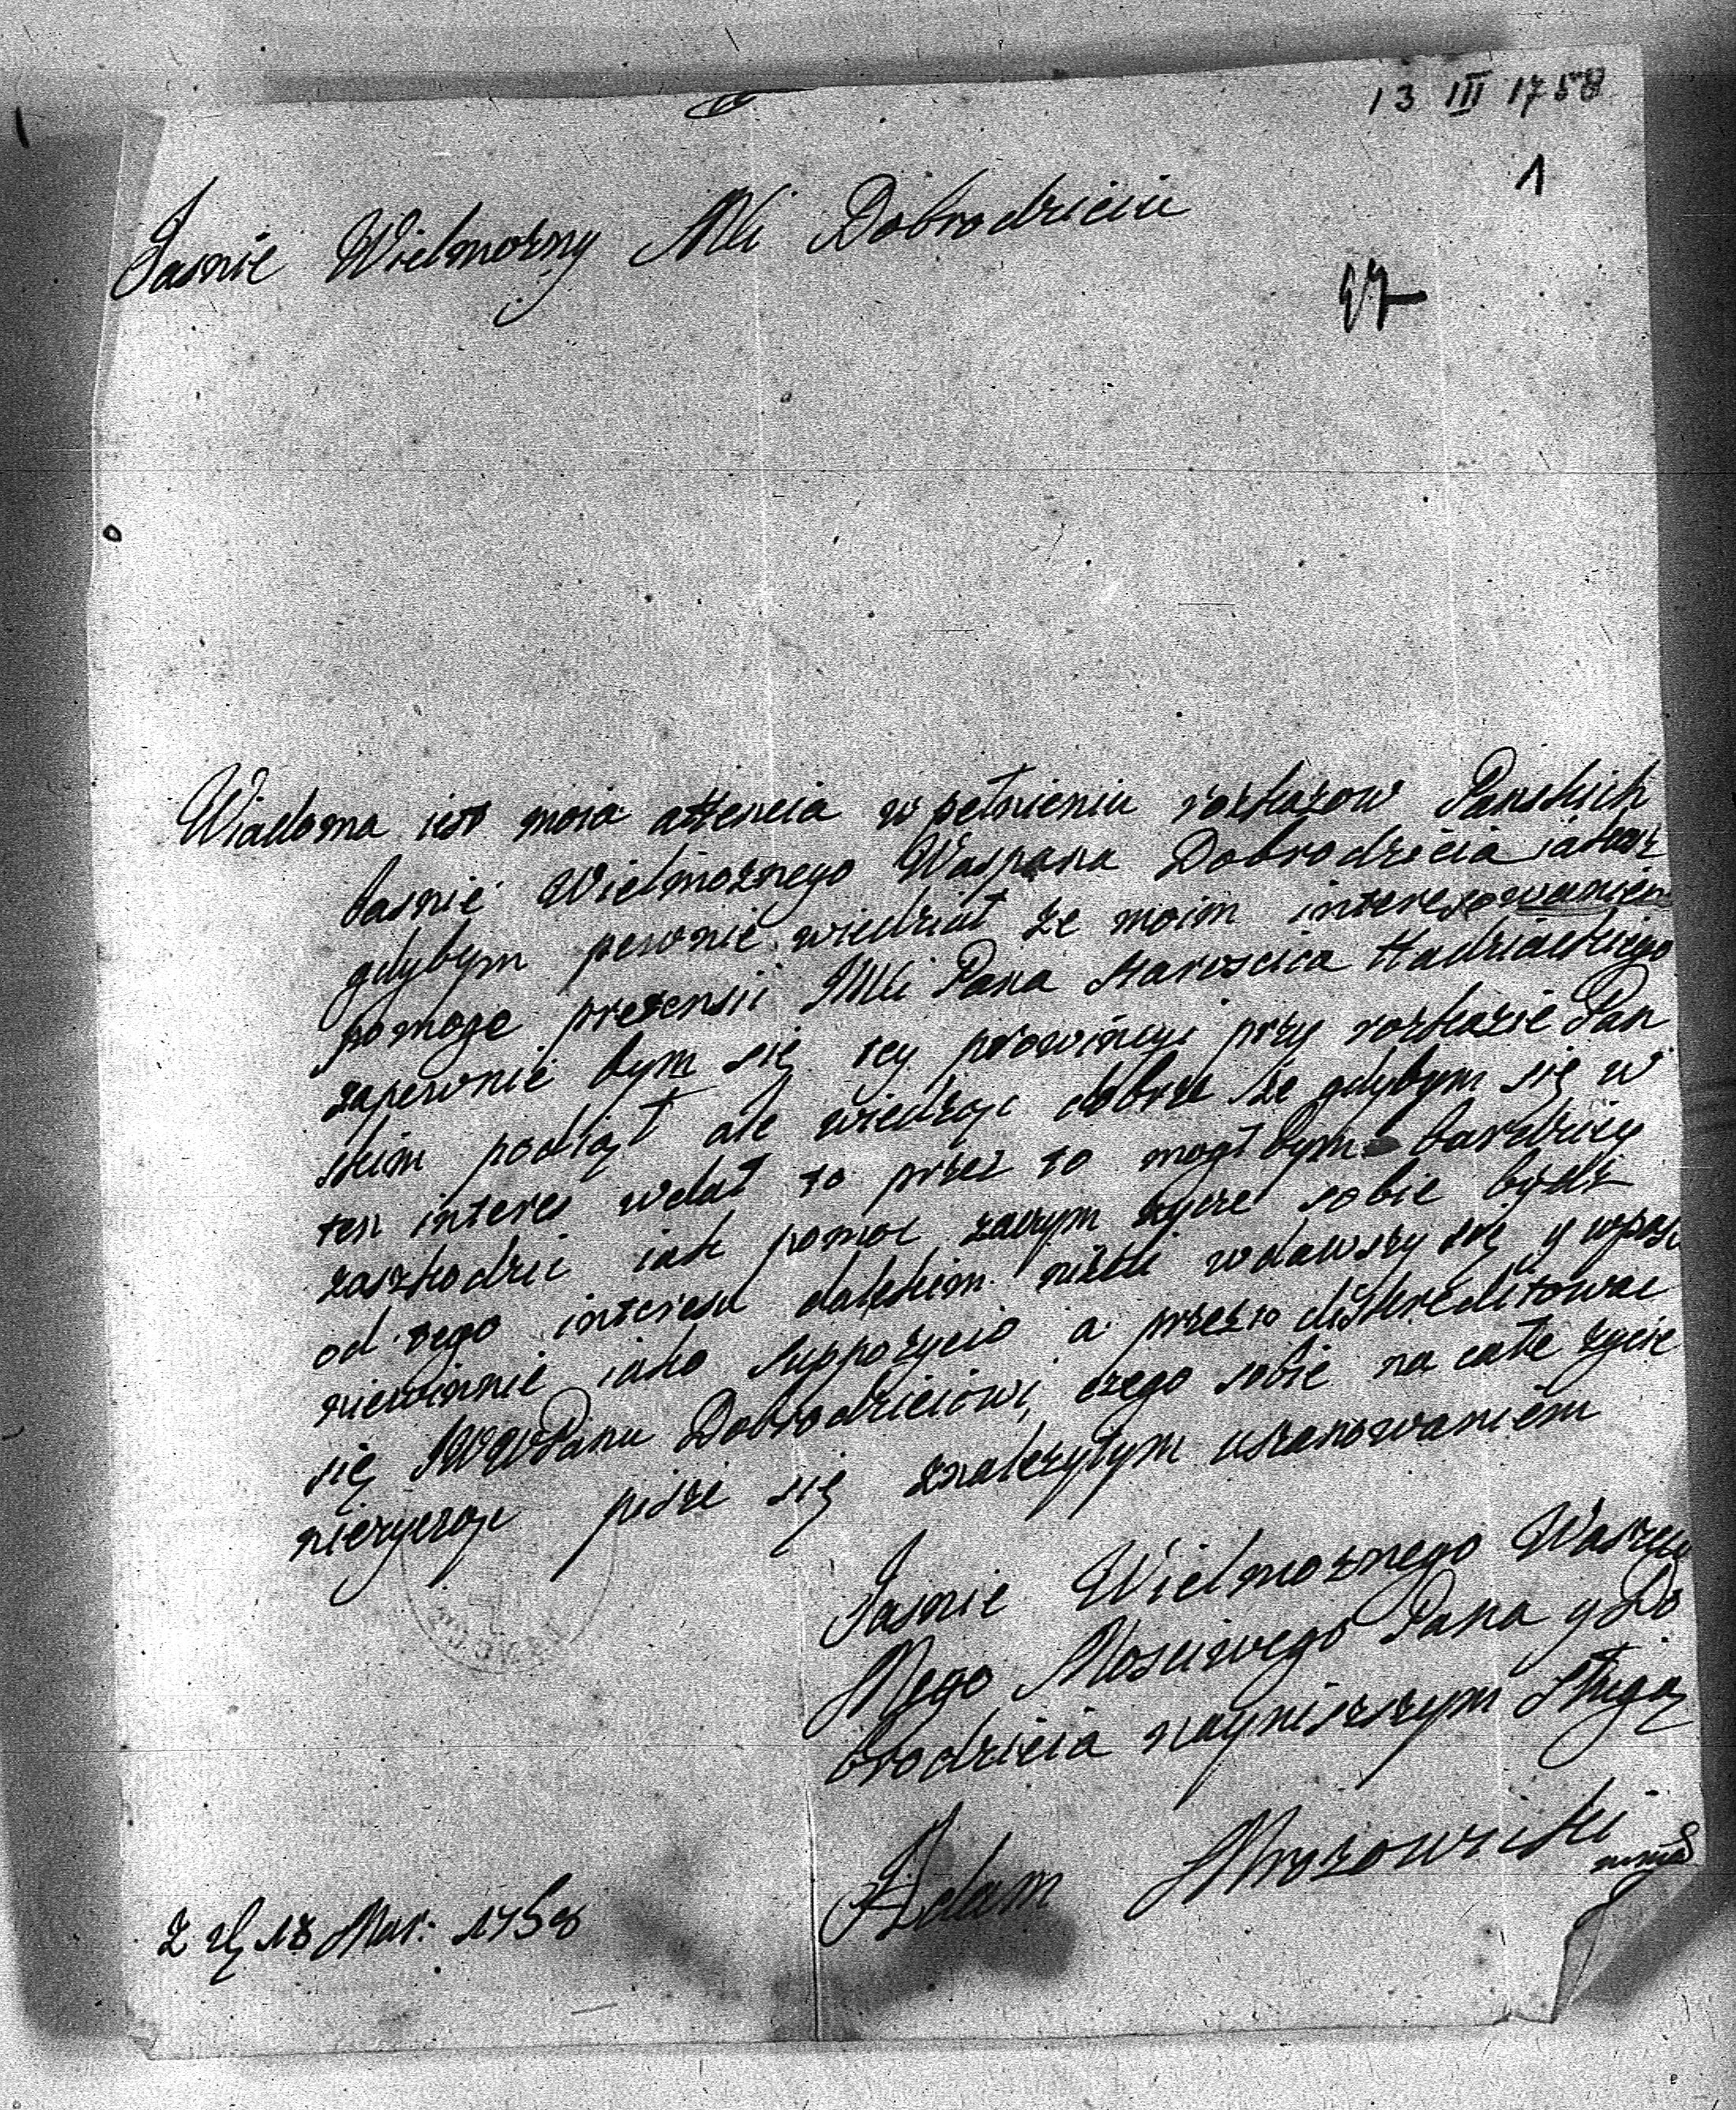 13 III 1758
1
Jasnie Wielmozny Mci Dobrodzieiu
47
Wiadoma iest moia attencia w pełnieniu rozkazow Panskich
Jasnie Wielmoznego Waspana Dobrodzieia iakoz
gdybym pewnie wiedział ze moim interesowaniem
pomoge pretensii JMci Pana Staroscica Hadziackiego
zapewnie bym się tey prowincyi przy rozkazie Pan
skim podiąt ale wiedząc dobrze ze gdybym się w
ten interes wdał to przez to mogł bym bardziey
zaszkodzic iak pomoc zaczym zycze sobie bydz
od tego interesu dalekim nizli wdawszy się y wpasc
niewinnie iako suppozycio a przezto diskreditowac
się JWWPanu Dobrodzieiowi, czego sobie na całe zycie
niezycząc pisze się znalezytym uszanowaniem
Jasnie Wielmoznego Waszec
Mego Mosciwego Pana y Do
brodzieia nayniszszym Sługą
Adam Mrozowicki
mpp
18 Mar: 1758